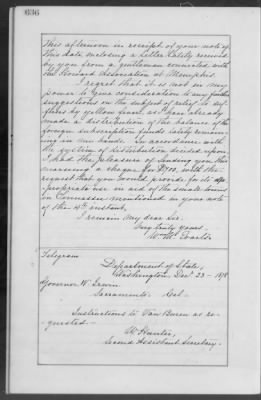 636
This afternoon in receipt of your note of
this date inclosing a letter lately received
by you from a gentleman connected with
the Howard Association at Memphis.
I regret that it is not in my
power to give consideration to any further
suggestions on the subject of relief to suf-
ferers by yellow fever, as I have already
made a distribution of the balance of the
foreign subscription funds lately remain-
ing in my hands. In accordance with
the system of distribution decided upon,
I had the pleasure of sending you this
morning a cheque for $700, with the
request that you would provide for its ap-
propriate use in aid of the small towns
in Tennessee mentioned in your note
of the 4th instant.
I remain my dear Sir
Very truly yours
Wm. M. Evarts.
Telegram
Department of State,
Washington, Dec. 23 - 1878
Governor W. Irwin
Sacramento. Cal-
Instructions to Van Buren as re-
quested -
W. Hunter,
Second Assistant Secretary.